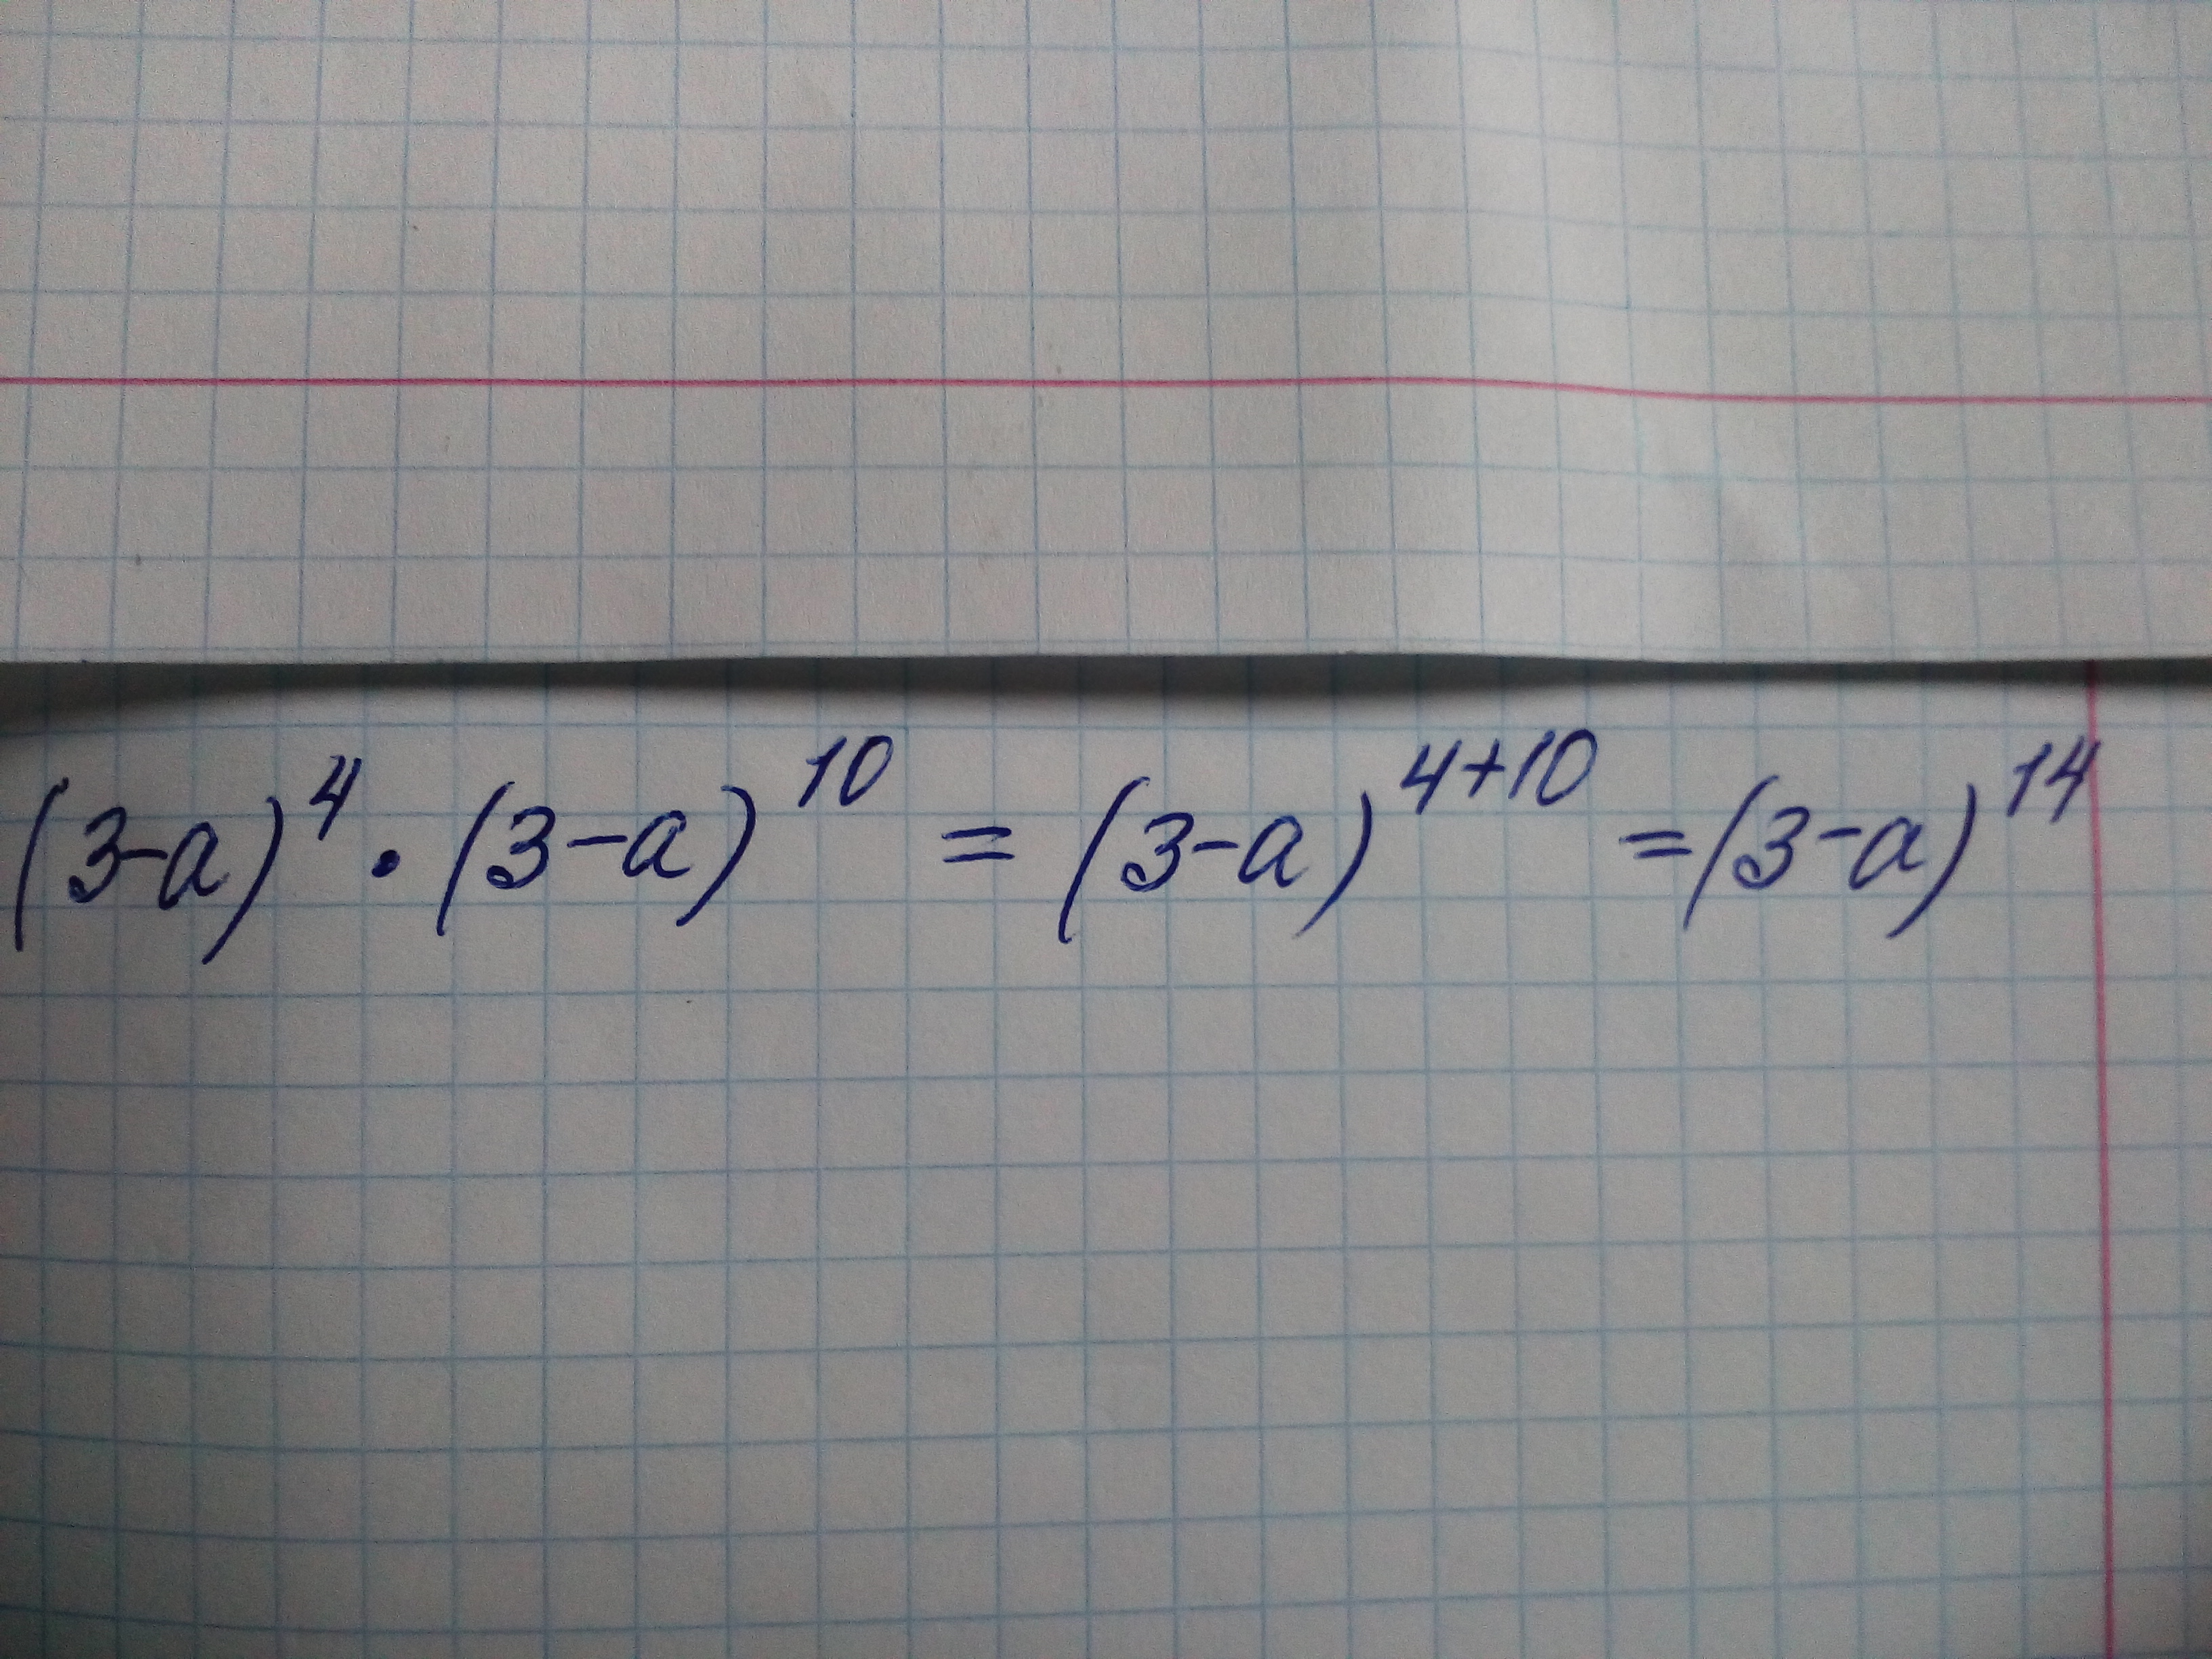 (3-a)⁴ · (3-a)¹⁰ = (3-a)⁴⁺¹⁰ = (3-a)¹⁴